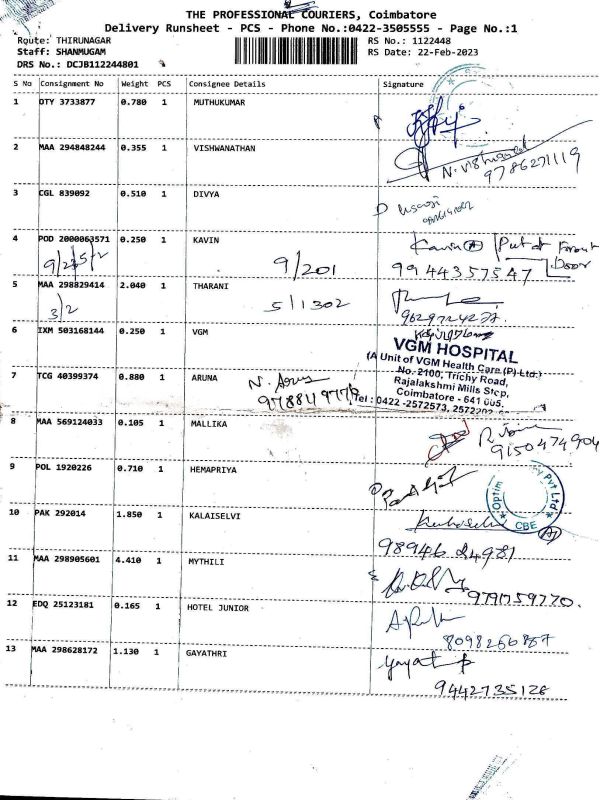 THE PROFESSIONAL COURIERS, Coimbatore
Delivery Runsheet - PCS - Phone No.:0422-3505555 - Page No.:1
Route: THIRUNAGAR RS No.: 1122448
Staff: SHANMUGAM RS Date: 22-Feb-2023
DRS No.: DCJB112244801
S No Consignment No Weight PCS Consignee Details Signature
1 DTY 3733877 0.780 1 MUTHUKUMAR
2 MAA 294848244 0.355 1 VISHWANATHAN
9786271119
3 CGL 839092 0.510 1 DIVYA
4 POD 2000063571 0.250 1 KAVIN Kavin Put at Front
Door
9/201 9944357547
5 MAA 298829414 2.040 1 THARANI
3/2 5/1302
6 IXM 503168144 0.250 1 VGM
VGM HOSPITAL
(A Unit of VGM Health Care (P) Ltd.)
No. 2100, Trichy Road,
Rajalakshmi Mills Stop,
Coimbatore - 641 005.
Tel : 0422 -2572573,
7 TCG 40399374 0.880 1 ARUNA
8 MAA 569124033 0.105 1 MALLIKA
9150474904
9 POL 1920226 0.710 1 HEMAPRIYA
Optim Pvt Ltd
CBE
10 PAK 292014 1.850 1 KALAISELVI
98946 24981
11 MAA 298905601 4.410 1 MYTHILI
9791759770.
12 EDQ 25123181 0.165 1 HOTEL JUNIOR
8098266887
13 MAA 298628172 1.130 1 GAYATHRI
9442735126